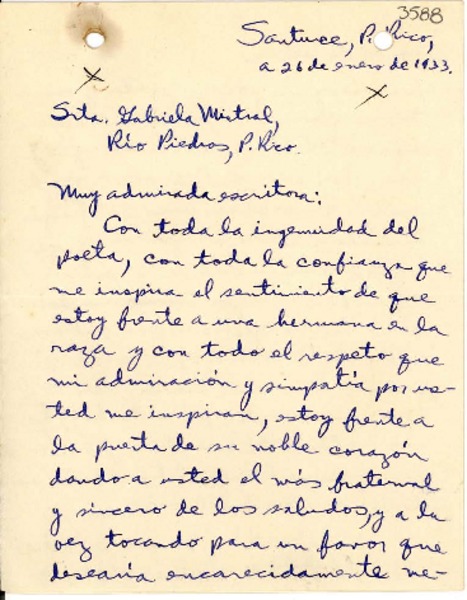 3588
Santurce, P. Rico,
a 26 de enero de 1933.
Srta. Gabriela Mistral,
Río Piedras, P. Rico.
Muy admirada escritora:
Con toda la ingenuidad del
poeta, con toda la confianza que
me inspira el sentimiento de que
estoy frente a una hermana en la
raza y con todo el respeto que
mi admiración y simpatía por us-
ted me inspiran, estoy frente a
la puerta de su noble corazón
dando a usted el más fraternal
y sincero de los saludos, y a la
vez tocando para un favor que
desearía encarecidamente me-